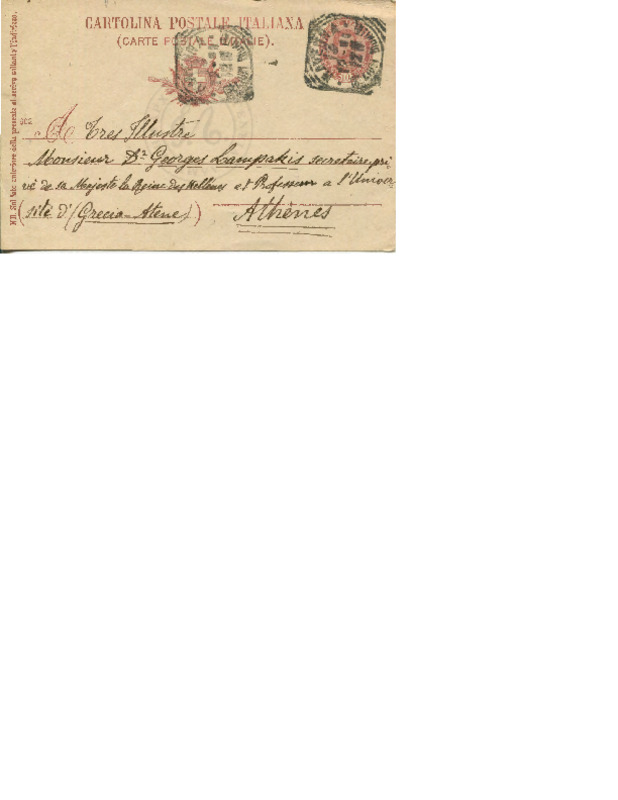 CARTOLINA POSTALE ITALIANA
(CARTE POSTALE D'ITALIE).
N.B. Sul lato anteriore della presente si scrive soltanto l'indirizzo.
A Tres Illustre
Monsieur Dr Georges Lampakis secretaire pri-
vé de sa Majesté la Reine des Hellenes et Professeur a l'Univer
sité d'(Grecia-Atene) Athènes